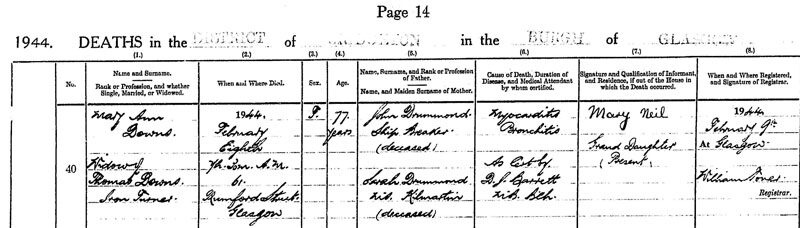 Page 14
1944. DEATHS in the DISTRICT of BRIDGETON in the BURGH of GLASGOW
(1.) (2.) (3.) (4.) (5.) (6.) (7.) (8.)
No.
Name and Surname.
Rank or Profession, and whether
Single, Married, or Widowed.
When and Where Died.
Sex.
Age.
Name, Surname, and Rank or Profession
of Father.
Name, and Maiden Surname of Mother.
Cause of Death, Duration of
Disease, and Medical Attendant
by whom certified.
Signature and Qualification of Informant,
and Residence, if out of the House in
which the Death occurred.
When and Where Registered,
and Signature of Registrar.
40
Mary Ann
Downs
Widow of
Thomas Downs
Iron Turner
1944.
February
Eighth
7h. A.M.
61.
Rumford Street
Glasgow
F.
77
years
John Drummond
Ship Breaker
(deceased)
Sarah Drummond
Kilmartin
(deceased)
Myocarditis
Bronchitis
As Cert by
D. J. Barrett
Mary Neil
Grand Daughter
(Present)
1944
February 9th
At Glasgow
William Toner
Registrar.